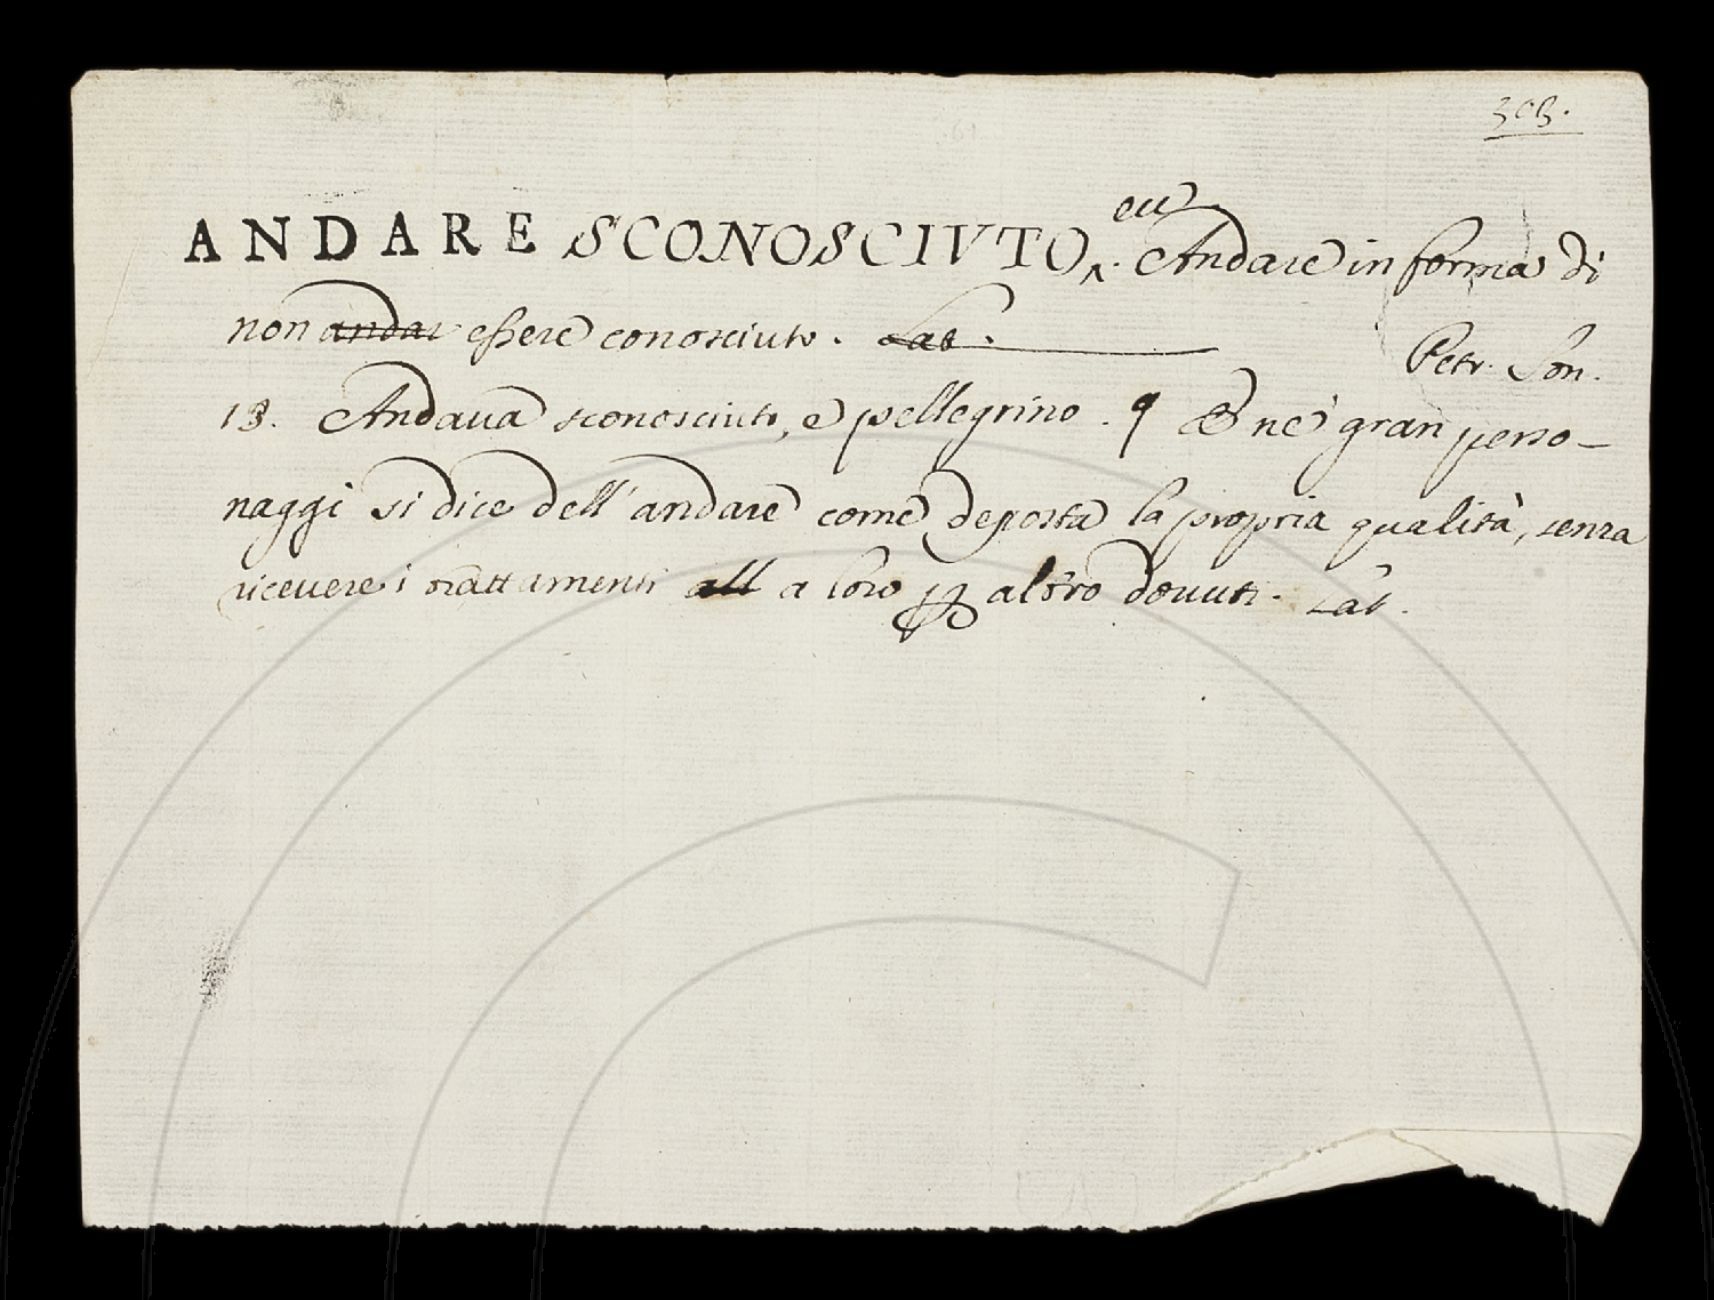 303.
ANDARE SCONOSCIVTO, ecc. Andare in forma di
non andar essere conosciuto. Lat. Petr. Son.
13. Andava sconosciuto, e pellegrino. ¶ E ne' gran perso-
naggi si dice dell'andare come deposta la propria qualità, senza
ricevere i trattamenti all a loro p altro dovuti. Lat.